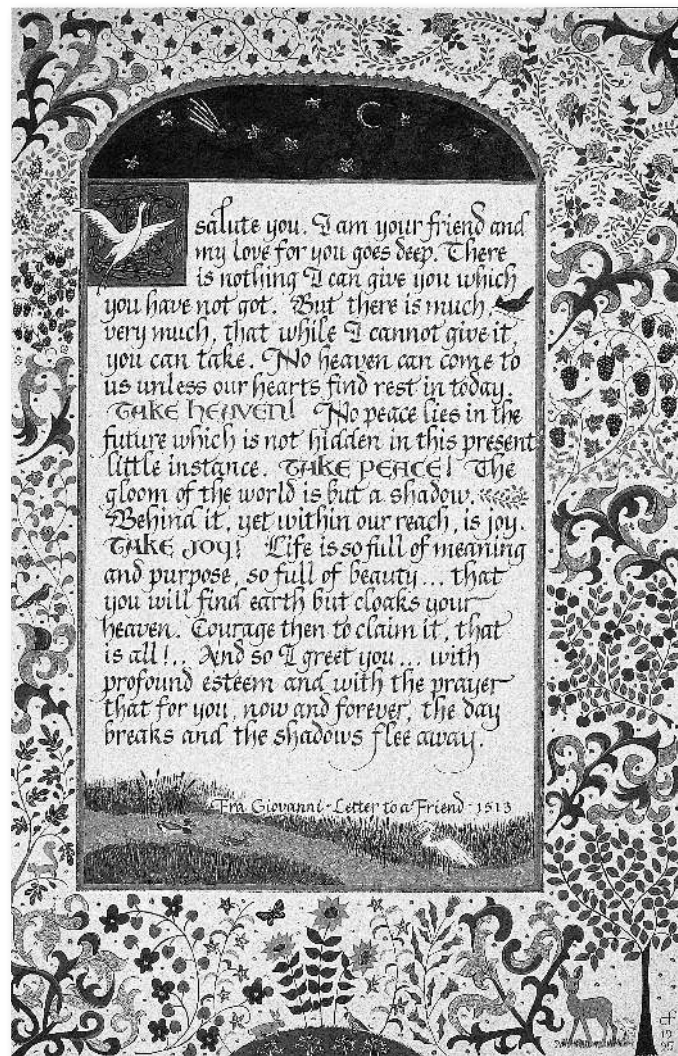 salute you. I am your friend and
my love for you goes deep. There
is nothing I can give you which
you have not got. But there is much,
very much, that while I cannot give it,
you can take. No heaven can come to
us unless our hearts find rest in today.
TAKE HEAVEN! No peace lies in the
future which is not hidden in this present
little instance. TAKE PEACE! The
gloom of the world is but a shadow.
Behind it, yet within our reach, is joy.
TAKE JOY! Life is so full of meaning
and purpose, so full of beauty... that
you will find earth but cloaks your
heaven. Courage then to claim it, that
is all!.. And so I greet you... with
profound esteem and with the prayer
that for you, now and forever, the day
breaks and the shadows flee away.
Fra Giovanni - Letter to a Friend - 1513